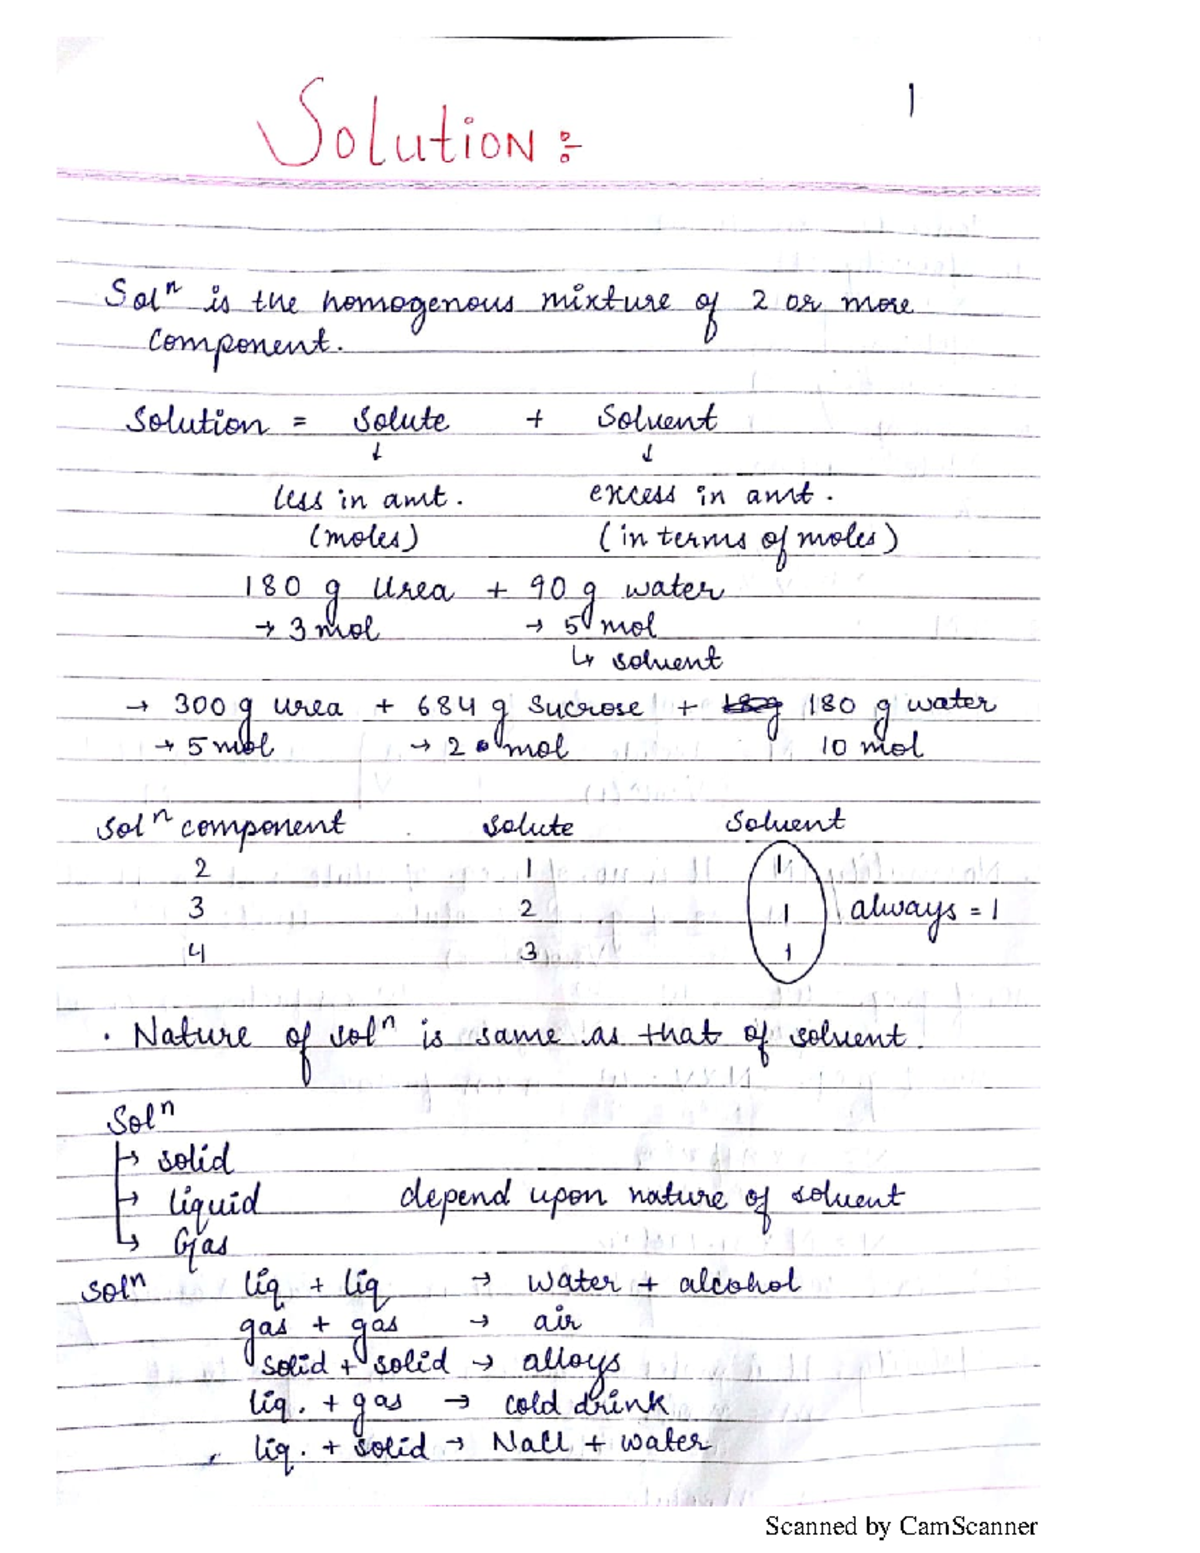 1
Solution:-
Solⁿ is the homogenous mixture of 2 or more
component.
Solution = Solute + Solvent
↓ ↓
less in amt. excess in amt.
(moles) (in terms of moles)
180 g Urea + 90 g water
→ 3 mol → 5 mol
↳ solvent
→ 300 g urea + 684 g Sucrose + 180 g water
→ 5 mol → 2 mol 10 mol
Solⁿ component Solute Solvent
2 1 1
3 2 1 always = 1
4 3 1
· Nature of solⁿ is same as that of solvent.
Solⁿ
→ solid
→ liquid depend upon nature of solvent
↳ Gas
Solⁿ liq + liq → water + alcohol
gas + gas → air
solid + solid → alloys
liq. + gas → cold drink
liq. + solid → NaCl + water
Scanned by CamScanner